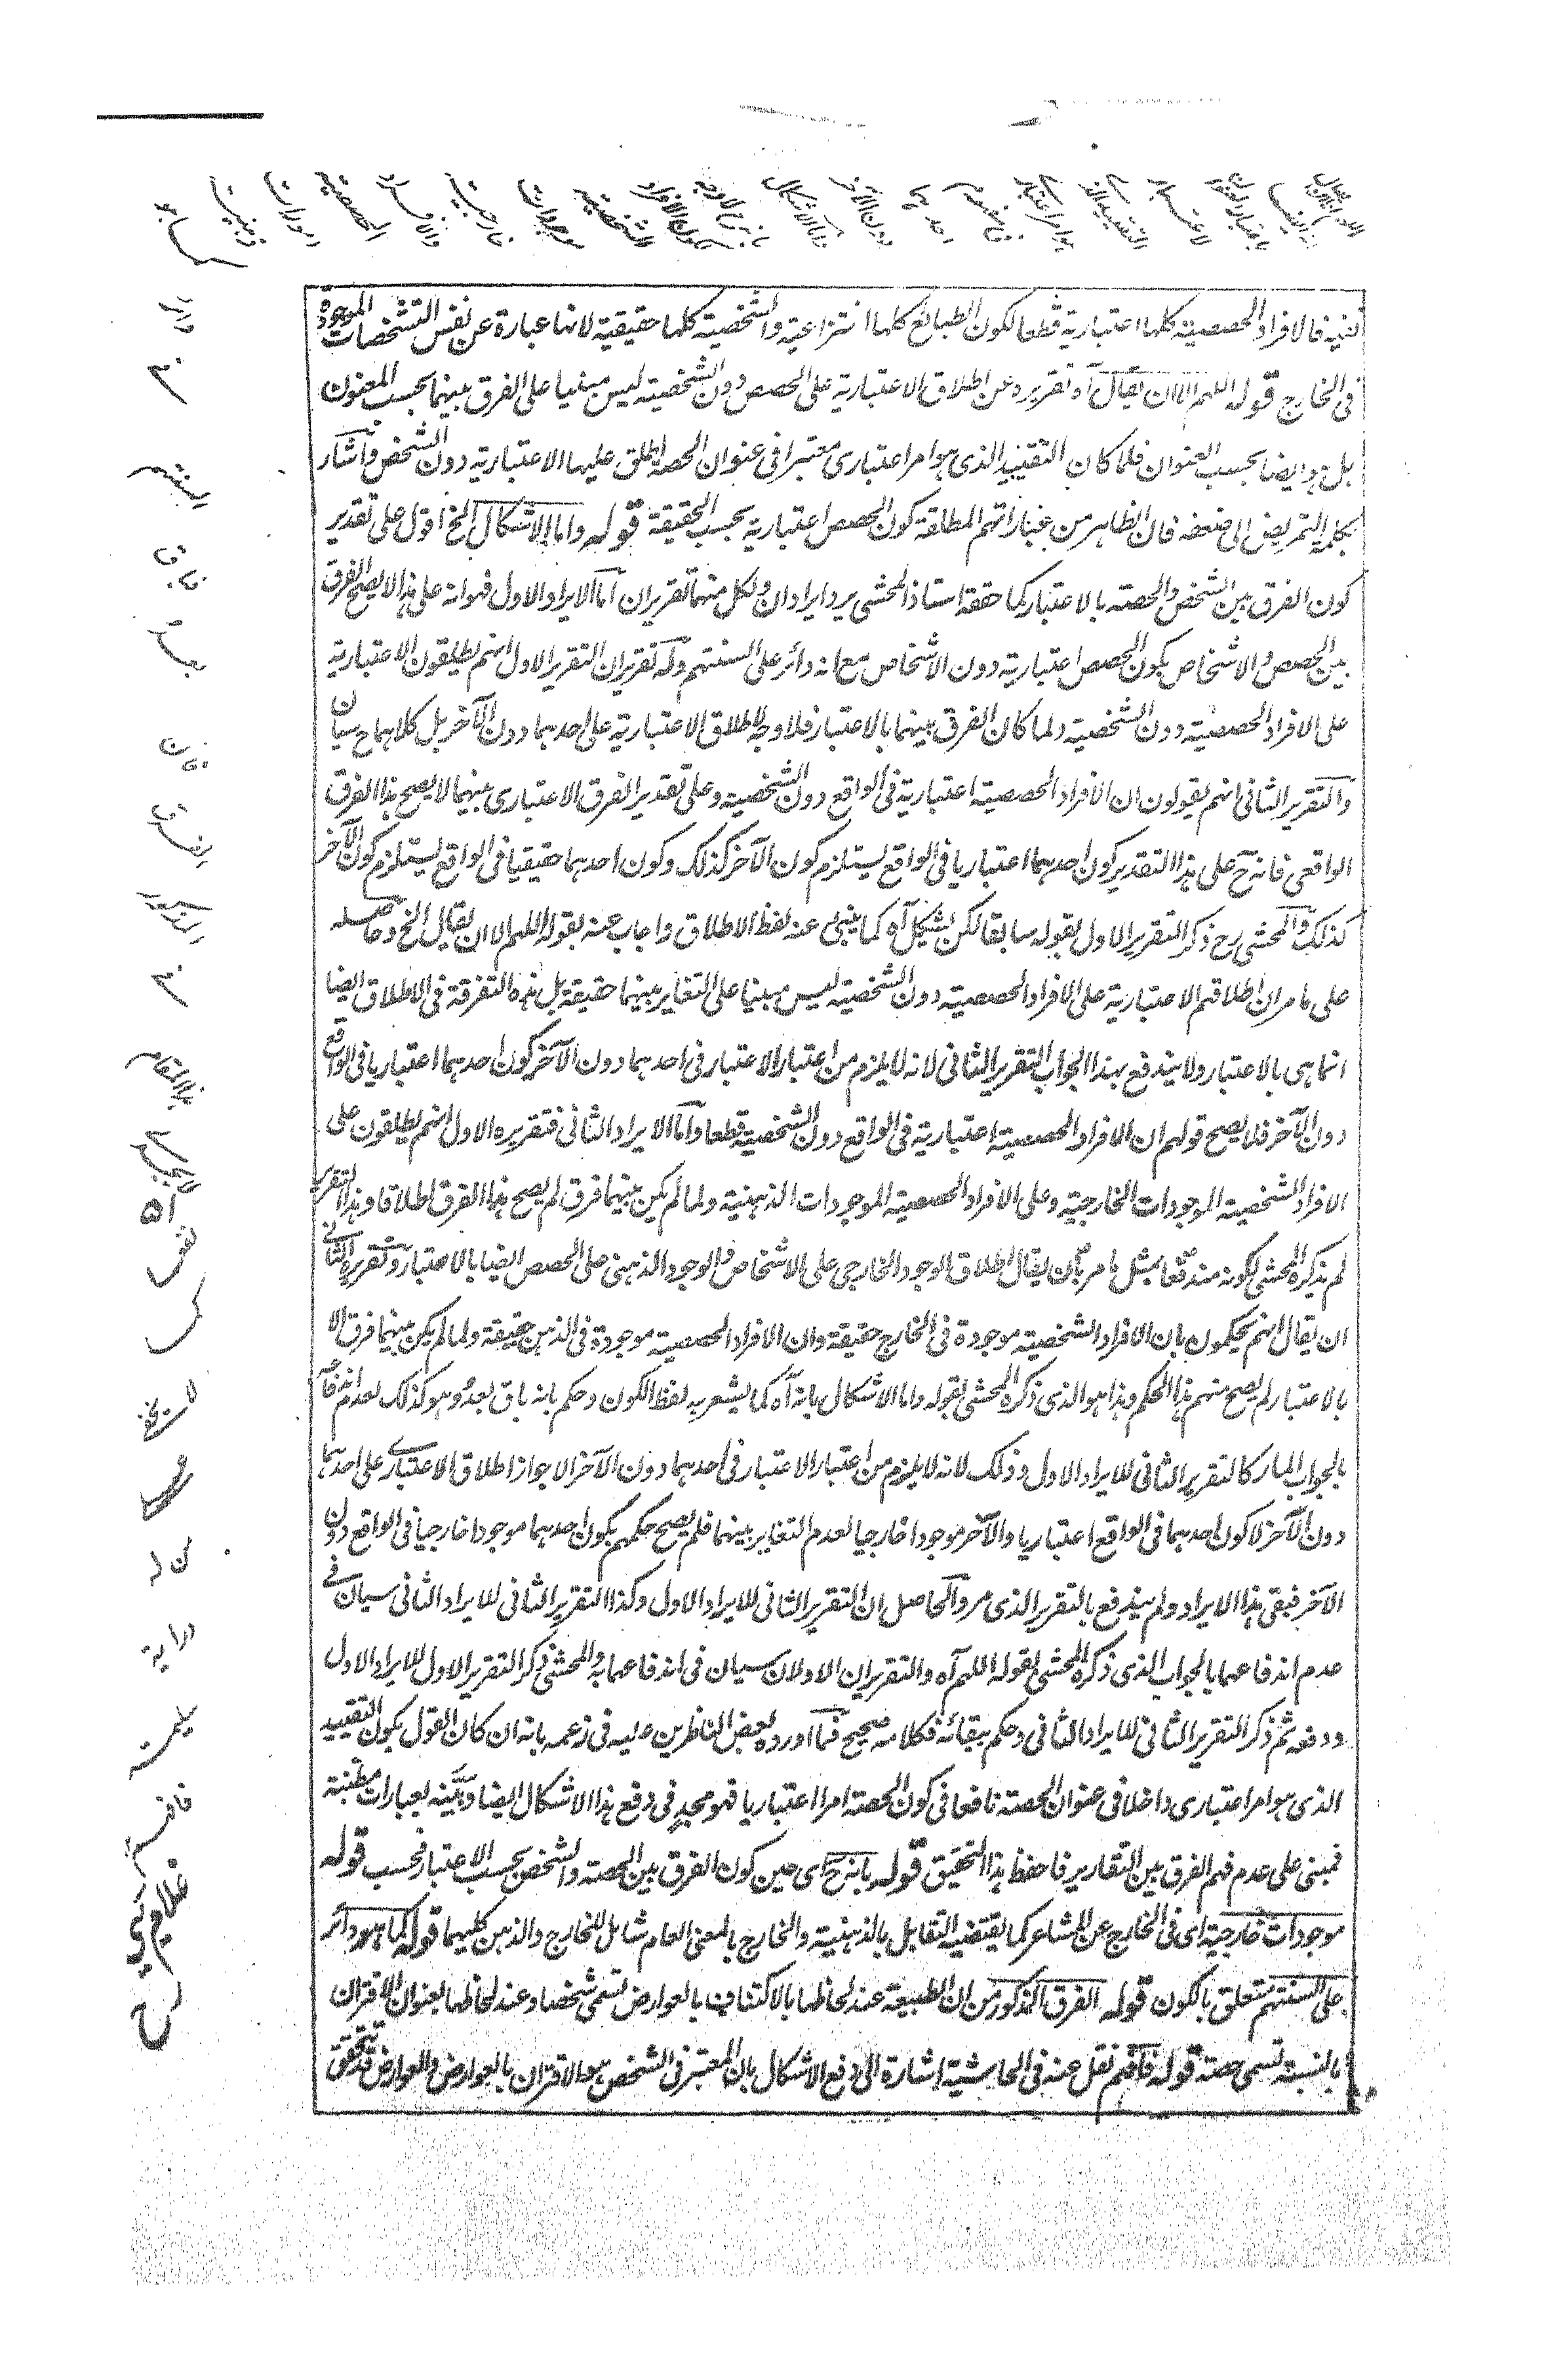 فالافراد الحصصية كلها اعتبارية قطعا لكون الطبائع كلها انتزاعية والشخصية كلها حقيقية لانها عبارة عن نفس التشخصات الموجودة
فى الخارج قوله اللهم الا ان يقال آه تقريره عن اطلاق الاعتبارية على الحصص دون الشخصية ليس مبنيا على الفرق بينهما بحسب المعنون
بل هو ايضا بحسب العنوان فلما كان التقييد الذى هو امر اعتبارى معتبرا فى عنوان الحصة اطلق عليها الاعتبارية دون الشخص واشار
بكلمة التمريض الى ضعفه فان الظاهر من عباراتهم المطلقة كون الحصص اعتبارية بحسب الحقيقة قوله واما الاشكال الخ اقول على تقدير
كون الفرق بين الشخص والحصة بالاعتبار كما حققه استاذ المحشى يرد ايرادان ولكل منهما تقريران اما الايراد الاول فهو انه على هذا لا يصح الفرق
بين الحصص والاشخاص بكون الحصص اعتبارية دون الاشخاص مع انه دائر على السنتهم وله تقريران التقرير الاول انهم يطلقون الاعتبارية
على الافراد الحصصية دون الشخصية ولما كان الفرق بينهما بالاعتبار فلا وجه لاطلاق الاعتبارية على احدهما دون الآخر بل كلاهما ح سيان
والتقرير الثانى انهم يقولون ان الافراد الحصصية اعتبارية فى الواقع دون الشخصية وعلى تقدير الفرق الاعتبارى بينهما لا يصح هذا الفرق
الواقعى فانه ح على هذا التقدير كون احدهما اعتباريا فى الواقع يستلزم كون الآخر كذلك وكون احدهما حقيقيا فى الواقع يستلزم كون الآخر
كذلك والمحشى رح ذكر التقرير الاول بقوله سابقا لكن يشكل آه كما ينبئ عنه لفظ الاطلاق واجاب عنه بقوله اللهم الا ان يقال الخ وحاصله
على ما مر ان اطلاقهم الاعتبارية على الافراد الحصصية دون الشخصية ليس مبنيا على التغاير بينهما حقيقة بل هذه التفرقة فى الاطلاق ايضا
انما هى بالاعتبار ولا يندفع بهذا الجواب التقرير الثانى لانه لا يلزم من اعتبار الاعتبار فى احدهما دون الآخر كون احدهما اعتباريا فى الواقع
دون الآخر فلا يصح قولهم ان الافراد الحصصية اعتبارية فى الواقع دون الشخصية قطعا واما الايراد الثانى فتقريره الاول انهم يطلقون على
الافراد الشخصية الموجودات الخارجية وعلى الافراد الحصصية الموجودات الذهنية ولما لم يكن بينهما فرق لم يصح هذا الفرق اطلاقا وهذا التقرير
لم يذكره المحشى لكونه مندفعا بمثل ما مر بان يقال اطلاق الوجود الخارجى على الاشخاص والوجود الذهنى على الحصص ايضا بالاعتبار وتقريره الثانى
ان يقال انهم يحكمون بان الافراد الشخصية موجودة فى الخارج حقيقة وان الافراد الحصصية موجودة فى الذهن حقيقة ولما لم يكن بينهما فرق الا
بالاعتبار لم يصح منهم هذا الحكم وهذا هو الذى ذكره المحشى بقوله واما الاشكال بانه آه كما يشعر به لفظ الكون وحكم بانه باق بعدُ وهو كذلك لعدم اندفاعه
بالجواب المار كالتقرير الثانى للايراد الاول وذلك لانه لا يلزم من اعتبار الاعتبار فى احدهما دون الآخر الا جواز اطلاق الاعتبارى على احدهما
دون الآخر لا كون احدهما فى الواقع اعتباريا والآخر موجودا خارجيا لعدم التغاير بينهما فلم يصح حكمهم بكون احدهما موجودا خارجيا فى الواقع دون
الآخر فبقى هذا الايراد ولم يندفع بالتقرير الذى مر والحاصل ان التقرير الثانى للايراد الاول وكذا التقرير الثانى للايراد الثانى سيان فى
عدم اندفاعهما بالجواب الذى ذكره المحشى بقوله اللهم آه والتقريران الاولان سيان فى اندفاعهما به والمحشى ذكر التقرير الاول للايراد الاول
ودفعه ثم ذكر التقرير الثانى للايراد الثانى وحكم ببقائه فكلامه صحيح فما اورده بعض الناظرين عليه فى زعمه بانه ان كان القول بكون التقييد
الذى هو امر اعتبارى داخلا فى عنوان الحصة نافعا فى كون الحصة امرا اعتباريا فهو مجدٍ فى دفع هذا الاشكال ايضا وبيّنه بعبارات مطنبة
فمبنى على عدم فهم الفرق بين التقارير فاحفظ هذا التحقيق قوله بانه ح اى حين كون الفرق بين الحصة والشخص بحسب الاعتبار فحسب قوله
موجودات خارجية اى فى الخارج عن المشاعر كما يقتضيه التقابل بالذهنية والخارج بالمعنى العام شامل للخارج والذهن كليهما قوله كما هو دائر
على السنتهم متعلق بالكون قوله الفرق المذكور من ان الطبيعة عند لحاظها بالاكتناف بالعوارض تسمى شخصا وعند لحاظها بعنوان الاقتران
بالنسبة تسمى حصة قوله فافهم نقل عنه فى الحاشية اشارة الى دفع الاشكال بان المعتبر فى الشخص هو الاقتران بالعوارض والعوارض قد تتحقق
واما الاشكال
بانه ح لا وجه
لكون الافراد
الشخصية
موجودات
خارجية
والافراد
الحصصية
امورات
ذهنية
كما هو
دائر
على
السنتهم
فباق
بعد
فان
الفرق
المذكور
فى
هذا المقام
لا يجرى
اه
نفس
لا يخفى
من له
دراية
سليمة
فافهم
غلام نبى
رح